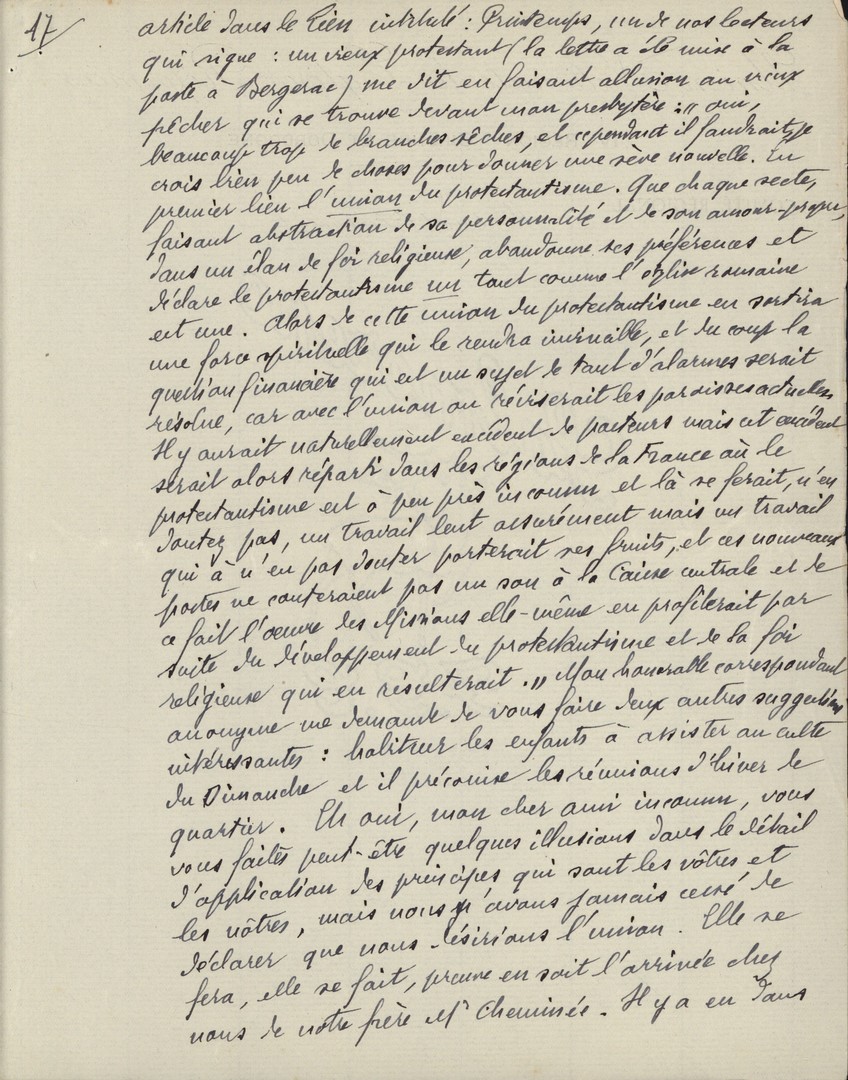 17
article dans le Lien intitulé : Printemps, un de nos lecteurs
qui signe : un vieux protestant (la lettre a été mise à la
poste à Bergerac) me dit en faisant allusion au vieux
pêcher qui se trouve devant mon presbytère : " oui,
beaucoup trop de branches sêches, et cependant il faudrait, je
crois bien peu de choses pour donner une sève nouvelle. En
premier lieu l'union du protestantisme. Que chaque secte,
faisant abstraction de sa personnalité et de son amour-propre,
dans un élan de foi religieuse, abandonne ses préférences et
déclare le protestantisme un tout comme l'église romaine
est une. Alors de cette union du protestantisme en sortira
une force spirituelle qui le rendra invincible, et du coup la
question financière qui est un sujet de tant d'alarmes serait
résolue, car avec l'union on réviserait les paroisses actuelles
Il y aurait naturellement excédent de pasteurs mais cet excédent
serait alors réparti dans les régions de la France où le
protestantisme est à peu près inconnu et là se ferait, n'en
doutez pas, un travail lent assurément mais un travail
qui à n'en pas douter porterait ses fruits, et ces nouveaux
postes ne couteraient pas un sou à la Caisse centrale et de
ce fait l'oeuvre des Missions elle-même en profiterait par
suite du développement du protestantisme et de la foi
religieuse qui en résulterait. " Mon honorable correspondant
anonyme me demande de vous faire deux autres suggestions
intéressantes : habituer les enfants à assister au culte
du Dimanche et il préconise les réunions d'hiver de
quartier. Eh oui, mon cher ami inconnu, vous
vous faites peut-être quelques illusions dans le détail
d'application des principes qui sont les vôtres et
les nôtres, mais nous n'avons jamais cessé de
déclarer que nous désirions l'union. Elle se
fera, elle se fait, preuve en soit l'arrivée chez
nous de notre frère Mr Cheminée. Il y a eu dans